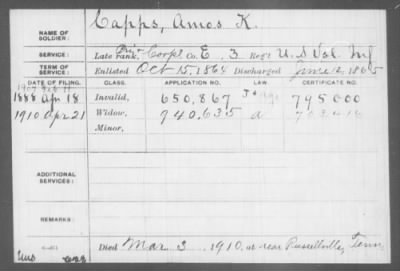 NAME OF SOLDIER: Capps, Amos K.
SERVICE: Late rank, Pri & Corpl Co. E, 3 Reg't U.S Vol. Inf
TERM OF SERVICE: Enlisted Oct 15, 1864 Discharged June 12, 1865
DATE OF FILING. CLASS. APPLICATION NO. LAW. CERTIFICATE NO.
1888 Apr 18. Invalid, 650,867 795000
1910 Apr 21 Widow, 940,635 a
Minor,
ADDITIONAL SERVICES:
REMARKS:
Died Mar 3, 1910, at near Russellville, Tenn